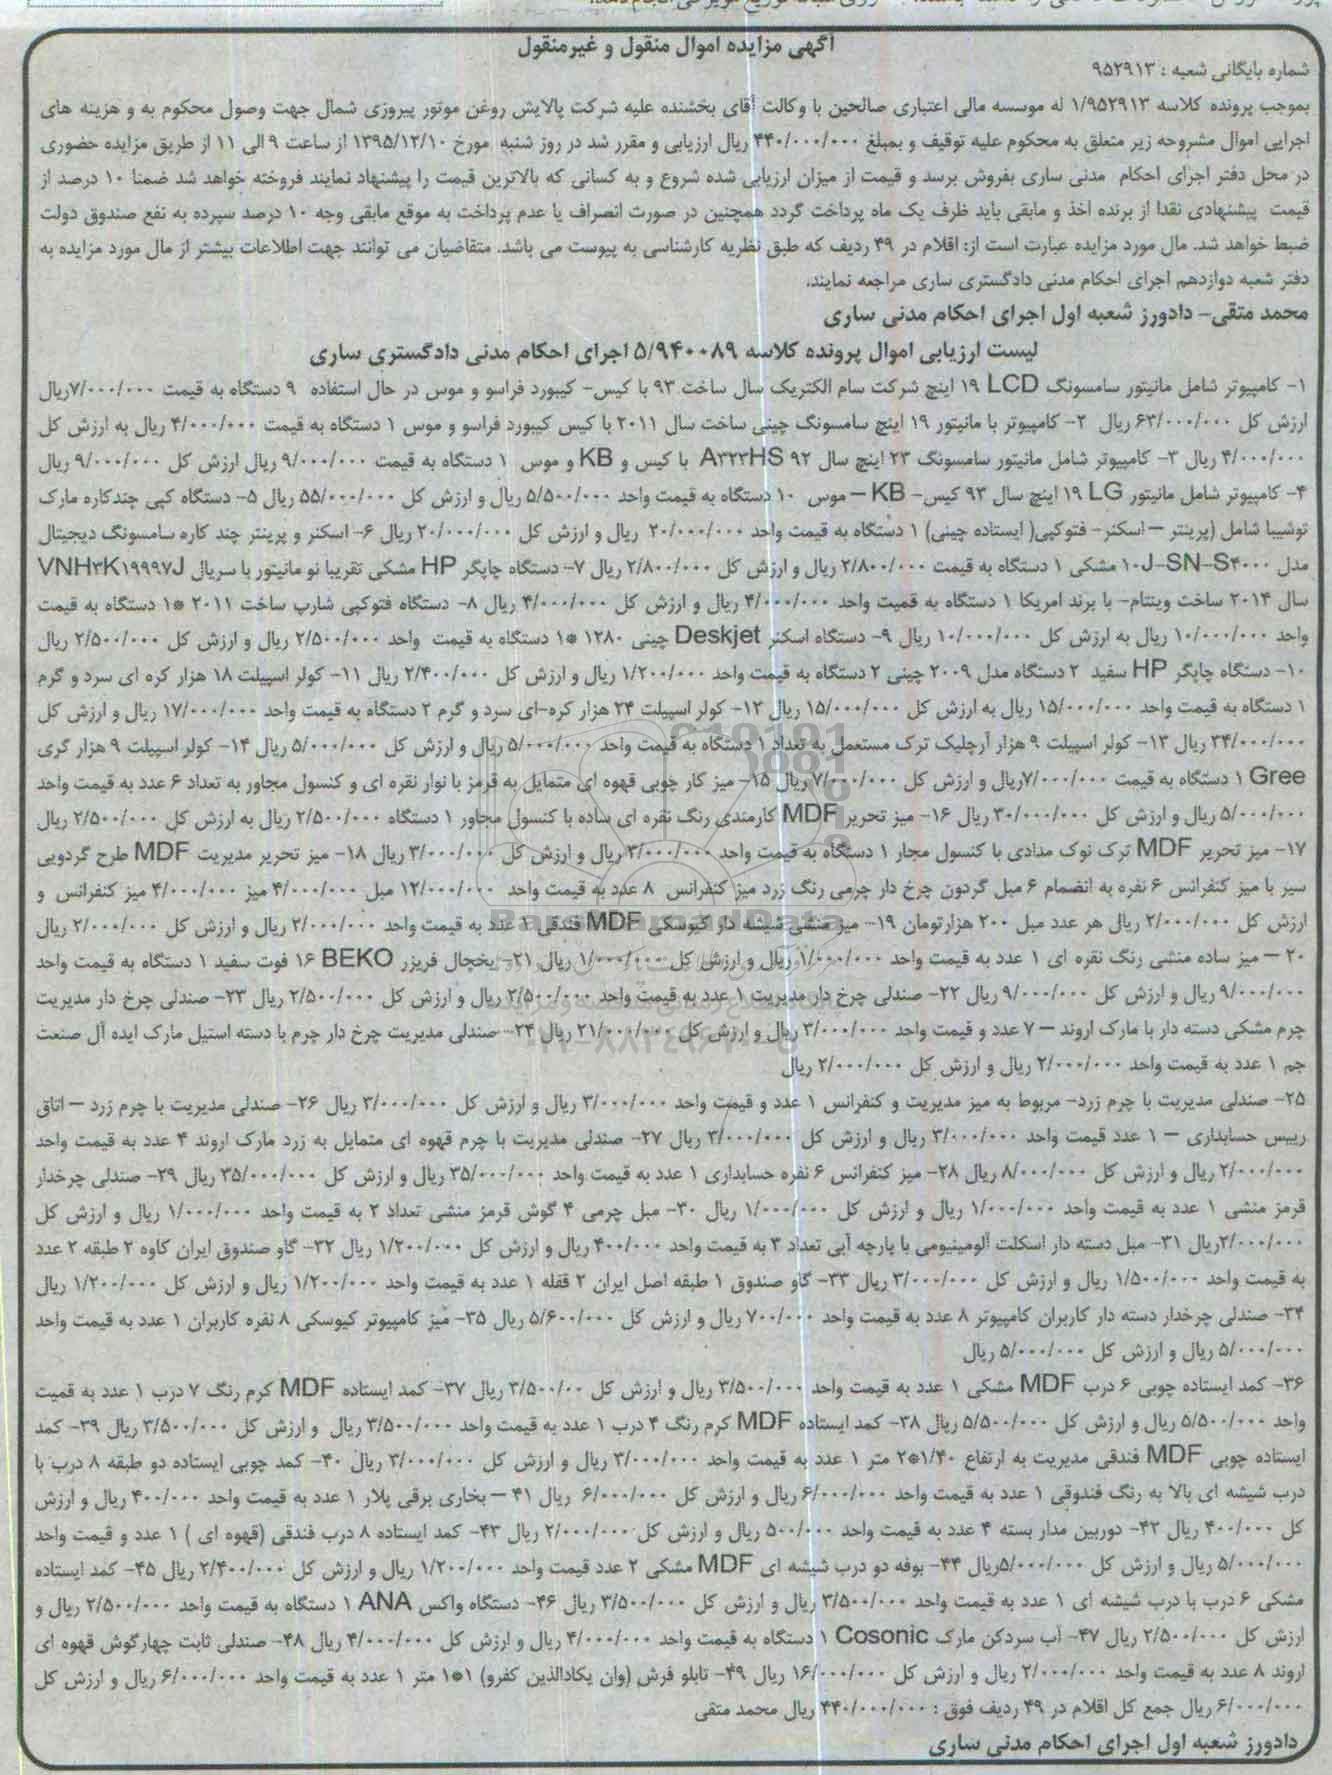 آگهی مزایده اموال منقول و غیرمنقول
شماره بایگانی شعبه : ۹۵۲۹۱۳
بموجب پرونده کلاسه ۱/۹۵۲۹۱۳ له موسسه مالی اعتباری صالحین با وکالت آقای بخشنده علیه شرکت پالایش روغن موتور پیروزی شمال جهت وصول محکوم به و هزینه های
اجرایی اموال مشروحه زیر متعلق به محکوم علیه توقیف و بمبلغ ۴۴۰/۰۰۰/۰۰۰ ریال ارزیابی و مقرر شد در روز شنبه مورخ ۱۳۹۵/۱۲/۱۰ از ساعت ۹ الی ۱۱ از طریق مزایده حضوری
در محل دفتر اجرای احکام مدنی ساری بفروش برسد و قیمت از میزان ارزیابی شده شروع و به کسانی که بالاترین قیمت را پیشنهاد نمایند فروخته خواهد شد ضمنا ۱۰ درصد از
قیمت پیشنهادی نقدا از برنده اخذ و مابقی باید ظرف یک ماه پرداخت گردد همچنین در صورت انصراف یا عدم پرداخت به موقع مابقی وجه ۱۰ درصد سپرده به نفع صندوق دولت
ضبط خواهد شد. مال مورد مزایده عبارت است از: اقلام در ۴۹ ردیف که طبق نظریه کارشناسی به پیوست می باشد. متقاضیان می توانند جهت اطلاعات بیشتر از مال مورد مزایده به
دفتر شعبه دوازدهم اجرای احکام مدنی دادگستری ساری مراجعه نمایند.
محمد متقی- دادورز شعبه اول اجرای احکام مدنی ساری
لیست ارزیابی اموال پرونده کلاسه ۵/۹۴۰۰۸۹ اجرای احکام مدنی دادگستری ساری
۱- کامپیوتر شامل مانیتور سامسونگ LCD ۱۹ اینچ شرکت سام الکتریک سال ساخت ۹۳ با کیس- کیبورد فراسو و موس در حال استفاده ۹ دستگاه به قیمت ۷/۰۰۰/۰۰۰ریال
ارزش کل ۶۳/۰۰۰/۰۰۰ ریال ۲- کامپیوتر با مانیتور ۱۹ اینچ سامسونگ چینی ساخت سال ۲۰۱۱ با کیس کیبورد فراسو و موس ۱ دستگاه به قیمت ۴/۰۰۰/۰۰۰ ریال به ارزش کل
۴/۰۰۰/۰۰۰ ریال ۳- کامپیوتر شامل مانیتور سامسونگ ۲۳ اینچ سال ۹۲ A۳۲۳HS با کیس و KB و موس ۱ دستگاه به قیمت ۹/۰۰۰/۰۰۰ ریال ارزش کل ۹/۰۰۰/۰۰۰ ریال
۴- کامپیوتر شامل مانیتور LG ۱۹ اینچ سال ۹۳ کیس- KB – موس ۱۰ دستگاه به قیمت واحد ۵/۵۰۰/۰۰۰ ریال و ارزش کل ۵۵/۰۰۰/۰۰۰ ریال ۵- دستگاه کپی چندکاره مارک
توشیبا شامل (پرینتر – اسکنر- فتوکپی( ایستاده چینی) ۱ دستگاه به قیمت واحد ۲۰/۰۰۰/۰۰۰ ریال و ارزش کل ۲۰/۰۰۰/۰۰۰ ریال ۶- اسکنر و پرینتر چند کاره سامسونگ دیجیتال
مدل ۱۰J-SN-S۴۰۰۰ مشکی ۱ دستگاه به قیمت ۲/۸۰۰/۰۰۰ ریال و ارزش کل ۲/۸۰۰/۰۰۰ ریال ۷- دستگاه چاپگر HP مشکی تقریبا نو مانیتور با سریال VNH۳K۱۹۹۹۷J
سال ۲۰۱۴ ساخت ویتنام- با برند امریکا ۱ دستگاه به قمیت واحد ۴/۰۰۰/۰۰۰ ریال و ارزش کل ۴/۰۰۰/۰۰۰ ریال ۸- دستگاه فتوکپی شارپ ساخت ۲۰۱۱ *۱ دستگاه به قیمت
واحد ۱۰/۰۰۰/۰۰۰ ریال به ارزش کل ۱۰/۰۰۰/۰۰۰ ریال ۹- دستگاه اسکنر Deskjet چینی ۱۲۸۰ *۱ دستگاه به قیمت واحد ۲/۵۰۰/۰۰۰ ریال و ارزش کل ۲/۵۰۰/۰۰۰ ریال
۱۰- دستگاه چاپگر HP سفید ۲ دستگاه مدل ۲۰۰۹ چینی ۲ دستگاه به قیمت واحد ۱/۲۰۰/۰۰۰ ریال و ارزش کل ۲/۴۰۰/۰۰۰ ریال ۱۱- کولر اسپیلت ۱۸ هزار کره ای سرد و گرم
۱ دستگاه به قیمت واحد ۱۵/۰۰۰/۰۰۰ ریال به ارزش کل ۱۵/۰۰۰/۰۰۰ ریال ۱۲- کولر اسپیلت ۲۴ هزار کره-ای سرد و گرم ۲ دستگاه به قیمت واحد ۱۷/۰۰۰/۰۰۰ ریال و ارزش کل
۳۴/۰۰۰/۰۰۰ ریال ۱۳- کولر اسپیلت ۹ هزار آرچلیک ترک مستعمل به تعداد ۱ دستگاه به قیمت واحد ۵/۰۰۰/۰۰۰ ریال و ارزش کل ۵/۰۰۰/۰۰۰ ریال ۱۴- کولر اسپیلت ۹ هزار گری
Gree ۱ دستگاه به قیمت ۷/۰۰۰/۰۰۰ریال و ارزش کل ۷/۰۰۰/۰۰۰ ریال ۱۵- میز کار چوبی قهوه ای متمایل به قرمز با نوار نقره ای و کنسول مجاور به تعداد ۶ عدد به قیمت واحد
۵/۰۰۰/۰۰۰ ریال و ارزش کل ۳۰/۰۰۰/۰۰۰ ریال ۱۶- میز تحریر MDF کارمندی رنگ نقره ای ساده با کنسول مجاور ۱ دستگاه ۲/۵۰۰/۰۰۰ ریال به ارزش کل ۲/۵۰۰/۰۰۰ ریال
۱۷- میز تحریر MDF ترک نوک مدادی با کنسول مجار ۱ دستگاه به قیمت واحد ۳/۰۰۰/۰۰۰ ریال و ارزش کل ۳/۰۰۰/۰۰۰ ریال ۱۸- میز تحریر مدیریت MDF طرح گردویی
سیر با میز کنفرانس ۶ نفره به انضمام ۶ مبل گردون چرخ دار چرمی رنگ زرد میز کنفرانس ۸ عدد به قیمت واحد ۱۲/۰۰۰/۰۰۰ مبل ۴/۰۰۰/۰۰۰ میز ۴/۰۰۰/۰۰۰ میز کنفرانس و
ارزش کل ۲/۰۰۰/۰۰۰ ریال هر عدد مبل ۲۰۰ هزارتومان ۱۹- میز منشی شیشه دار کیوسکی MDF فندقی ۱ عدد به قیمت واحد ۲/۰۰۰/۰۰۰ ریال و ارزش کل ۲/۰۰۰/۰۰۰ ریال
۲۰ – میز ساده منشی رنگ نقره ای ۱ عدد به قیمت واحد ۱/۰۰۰/۰۰۰ ریال و ارزش کل ۱/۰۰۰/۰۰۰ ریال ۲۱- یخچال فریزر BEKO ۱۶ فوت سفید ۱ دستگاه به قیمت واحد
۹/۰۰۰/۰۰۰ ریال و ارزش کل ۹/۰۰۰/۰۰۰ ریال ۲۲- صندلی چرخ دار مدیریت ۱ عدد به قیمت واحد ۲/۵۰۰/۰۰۰ ریال و ارزش کل ۲/۵۰۰/۰۰۰ ریال ۲۳- صندلی چرخ دار مدیریت
چرم مشکی دسته دار با مارک اروند – ۷ عدد و قیمت واحد ۳/۰۰۰/۰۰۰ ریال و ارزش کل ۲۱/۰۰۰/۰۰۰ ریال ۲۴- صندلی مدیریت چرخ دار چرم با دسته استیل مارک ایده آل صنعت
جم ۱ عدد به قیمت واحد ۲/۰۰۰/۰۰۰ ریال و ارزش کل ۲/۰۰۰/۰۰۰ ریال
۲۵- صندلی مدیریت با چرم زرد- مربوط به میز مدیریت و کنفرانس ۱ عدد و قیمت واحد ۳/۰۰۰/۰۰۰ ریال و ارزش کل ۳/۰۰۰/۰۰۰ ریال ۲۶- صندلی مدیریت با چرم زرد – اتاق
رییس حسابداری – ۱ عدد قیمت واحد ۳/۰۰۰/۰۰۰ ریال و ارزش کل ۳/۰۰۰/۰۰۰ ریال ۲۷- صندلی مدیریت با چرم قهوه ای متمایل به زرد مارک اروند ۴ عدد به قیمت واحد
۲/۰۰۰/۰۰۰ ریال و ارزش کل ۸/۰۰۰/۰۰۰ ریال ۲۸- میز کنفرانس ۶ نفره حسابداری ۱ عدد به قیمت واحد ۳۵/۰۰۰/۰۰۰ ریال و ارزش کل ۳۵/۰۰۰/۰۰۰ ریال ۲۹- صندلی چرخدار
قرمز منشی ۱ عدد به قیمت واحد ۱/۰۰۰/۰۰۰ ریال و ارزش کل ۱/۰۰۰/۰۰۰ ریال ۳۰- مبل چرمی ۴ گوش قرمز منشی تعداد ۲ به قیمت واحد ۱/۰۰۰/۰۰۰ ریال و ارزش کل
۲/۰۰۰/۰۰۰ریال ۳۱- مبل دسته دار اسکلت آلومینیومی با پارچه آبی تعداد ۳ به قیمت واحد ۴۰۰/۰۰۰ ریال و ارزش کل ۱/۲۰۰/۰۰۰ ریال ۳۲- گاو صندوق ایران کاوه ۲ طبقه ۲ عدد
به قیمت واحد ۱/۵۰۰/۰۰۰ ریال و ارزش کل ۳/۰۰۰/۰۰۰ ریال ۳۳- گاو صندوق ۱ طبقه اصل ایران ۲ قفله ۱ عدد به قیمت واحد ۱/۲۰۰/۰۰۰ ریال و ارزش کل ۱/۲۰۰/۰۰۰ ریال
۳۴- صندلی چرخدار دسته دار کاربران کامپیوتر ۸ عدد به قیمت واحد ۷۰۰/۰۰۰ ریال و ارزش کل ۵/۶۰۰/۰۰۰ ریال ۳۵- میز کامپیوتر کیوسکی ۸ نفره کاربران ۱ عدد به قیمت واحد
۵/۰۰۰/۰۰۰ ریال و ارزش کل ۵/۰۰۰/۰۰۰ ریال
۳۶- کمد ایستاده چوبی ۶ درب MDF مشکی ۱ عدد به قیمت واحد ۳/۵۰۰/۰۰۰ ریال و ارزش کل ۳/۵۰۰/۰۰ ریال ۳۷- کمد ایستاده MDF کرم رنگ ۷ درب ۱ عدد به قمیت
واحد ۵/۵۰۰/۰۰۰ ریال و ارزش کل ۵/۵۰۰/۰۰۰ ریال ۳۸- کمد ایستاده MDF کرم رنگ ۴ درب ۱ عدد به قیمت واحد ۳/۵۰۰/۰۰۰ ریال و ارزش کل ۳/۵۰۰/۰۰۰ ریال ۳۹- کمد
ایستاده چوبی MDF فندقی مدیریت به ارتفاع ۱/۴۰*۲ متر ۱ عدد به قیمت واحد ۳/۰۰۰/۰۰۰ ریال و ارزش کل ۳/۰۰۰/۰۰۰ ریال ۴۰- کمد چوبی ایستاده دو طبقه ۸ درب با
درب شیشه ای بالا به رنگ فندوقی ۱ عدد به قیمت واحد ۶/۰۰۰/۰۰۰ ریال و ارزش کل ۶/۰۰۰/۰۰۰ ریال ۴۱ – بخاری برقی پلار ۱ عدد به قیمت واحد ۴۰۰/۰۰۰ ریال و ارزش
کل ۴۰۰/۰۰۰ ریال ۴۲- دوربین مدار بسته ۴ عدد به قیمت واحد ۵۰۰/۰۰۰ ریال و ارزش کل ۲/۰۰۰/۰۰۰ ریال ۴۳- کمد ایستاده ۸ درب فندقی (قهوه ای ) ۱ عدد و قیمت واحد
۵/۰۰۰/۰۰۰ ریال و ارزش کل ۵/۰۰۰/۰۰۰ریال ۴۴- بوفه دو درب شیشه ای MDF مشکی ۲ عدد قیمت واحد ۱/۲۰۰/۰۰۰ ریال و ارزش کل ۲/۴۰۰/۰۰۰ ریال ۴۵- کمد ایستاده
مشکی ۶ درب با درب شیشه ای ۱ عدد به قیمت واحد ۳/۵۰۰/۰۰۰ ریال و ارزش کل ۳/۵۰۰/۰۰۰ ریال ۴۶- دستگاه واکس ANA ۱ دستگاه به قیمت واحد ۲/۵۰۰/۰۰۰ ریال و
ارزش کل ۲/۵۰۰/۰۰۰ ریال ۴۷- آب سردکن مارک Cosonic ۱ دستگاه به قیمت واحد ۴/۰۰۰/۰۰۰ ریال و ارزش کل ۴/۰۰۰/۰۰۰ ریال ۴۸- صندلی ثابت چهارگوش قهوه ای
اروند ۸ عدد به قیمت واحد ۲/۰۰۰/۰۰۰ ریال و ارزش کل ۱۶/۰۰۰/۰۰۰ ریال ۴۹- تابلو فرش (وان یکادالذین کفرو) ۱*۱ متر ۱ عدد به قیمت واحد ۶/۰۰۰/۰۰۰ ریال و ارزش کل
۶/۰۰۰/۰۰۰ ریال جمع کل اقلام در ۴۹ ردیف فوق : ۴۴۰/۰۰۰/۰۰۰ ریال محمد متقی
دادورز شعبه اول اجرای احکام مدنی ساری